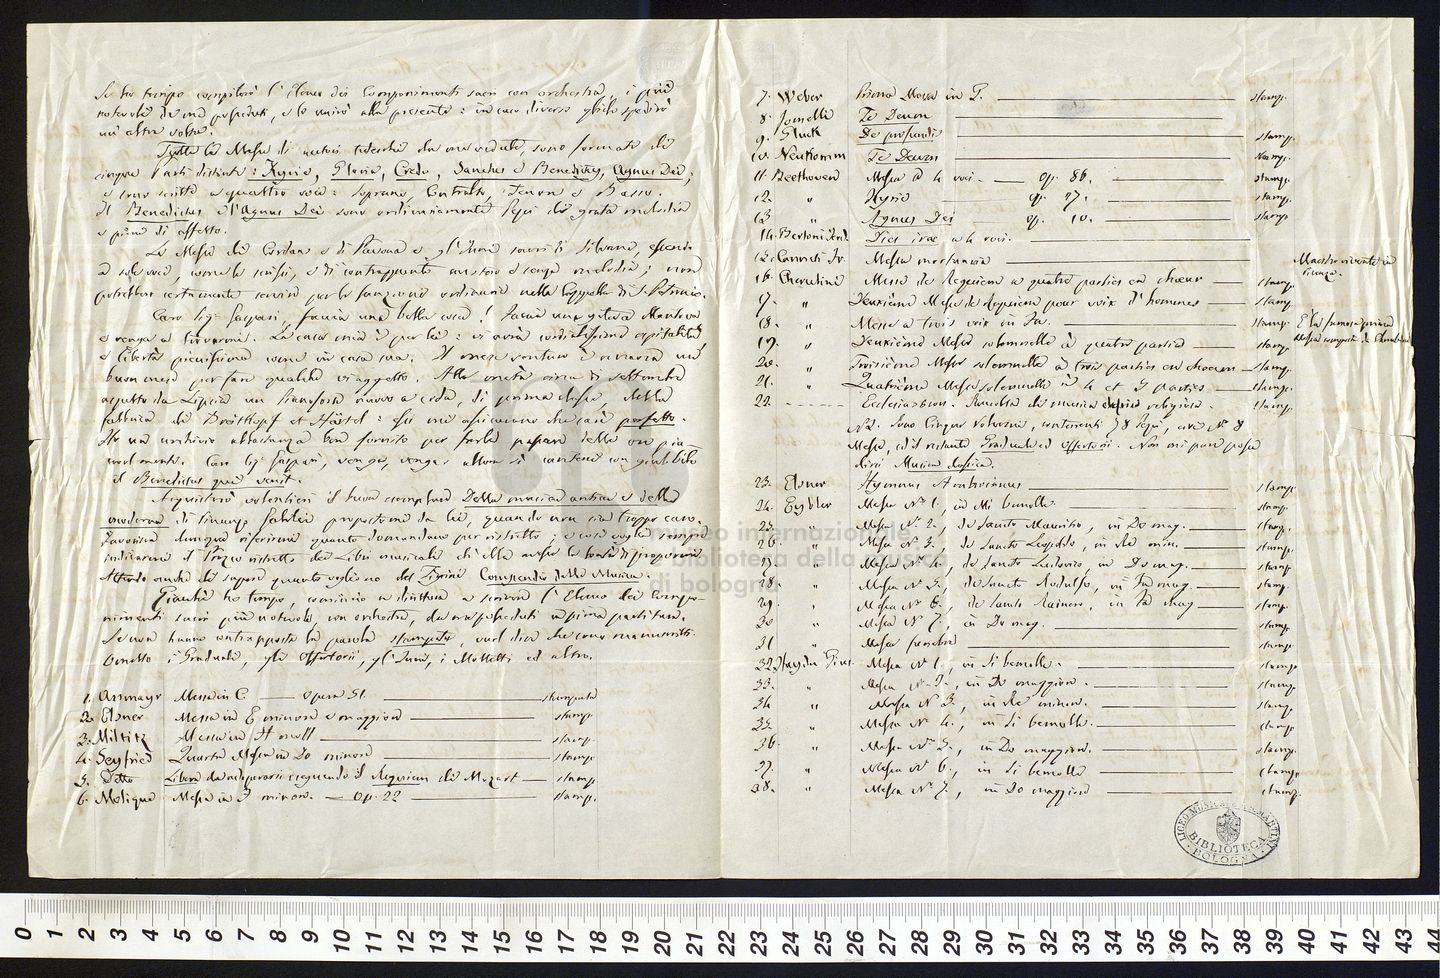 Se ho tempo compilerò l'Elenco dei Componimenti sacri con orchestra, i più
notevoli da me posseduti, e lo unirò alla presente: in caso diverso glielo spedirò
un'altra volta.
Tutte le Messe di autori tedeschi da me vedute, sono formate di
cinque Parti distinte: Kyrie, Gloria, Credo, Sanctus e Benedictus, Agnus Dei;
e sono scritte a quattro voci: Soprano, Contralto, Tenore e Basso.
Il Benedictus e l'Agnus Dei sono ordinariamente Pezzi di grata melodia
e pieni di affetto.
Le Messe del Cordans e di Pavona e gl'Inni sacri di Silvani, essendo
a sole voci, come lo scrissi, e di contrappunto austero e senza melodia; non
potrebbero certamente servire per le funzioni ordinarie nella Cappella di S. Petronio.
Caro Sig. Gaspari, faccia una bella cosa! Faccia una gita a Mantova
e venga a trovarmi. La casa mia è per lei: vi avrà cordialissima ospitalità
e libertà pienissima come in casa sua. Il mese venturo è ancora un
buon mese per fare qualche viaggetto. Alla metà circa di settembre
aspetto da Lipsia un Pianoforte nuovo a coda, di prima classe, della
fabbrica di Breitkopf et Härtel: che mi assicurano che sarà perfetto.
Ho un archivio abbastanza ben fornito per farle passare delle ore pia-
cevolmente. Caro Sig. Gaspari, venga, venga: allora si canterà con giubilo
il Benedictus qui venit.
Acquisterò volentieri il suo esemplare Della musica antica e della
moderna di proposto da lei, quando non sia troppo caro.
Favorisca dunque riferirmi quanto domandano per ristretto; e così voglia sempre
indicarmi il Prezzo ristretto dei Libri musicali ch'Ella avesse la bontà di propormi.
Attendo anche di sapere quanto vogliono del Tigrini Compendio della Musica.
Giacchè ho tempo, comincio a dirittura a scrivere l'Elenco dei Compo-
nimenti sacri più notevoli, con orchestra, da me posseduti in piena partitura.
Se non hanno contrapposta la parola stampata, vuol dire che sono manoscritti.
Ometto i Graduali, gli Offertorii, gl'Inni, i Mottetti ed altro.
1. Assmayr Messa in C. — Opera 51. stampata
2. Elsner Messa in E minore e maggiore stamp.
3. Miltitz Messa in H moll stamp.
4. Seyfried Quarta Messa in Do minore stamp.
5. Detto Libera da adoperarsi eseguendo il Requiem di Mozart — stamp.
6. Molique Messa in F minore. — Op. 22 stamp.
7. Weber Prima Messa in G. stamp.
8. Jomelli Te Deum
9. Gluck De profundis stamp.
10. Neukomm Te Deum stamp.
11. Beethoven Messa a 4 voci. — op. 86. stamp.
12. " Kyrie op. 97. stamp.
13. " Agnus Dei op. 10. stamp.
14. Bertoni Ferd. Dies irae a 4 voci.
15. Canneti Fr. Messa mortuaria Maestro vivente in
Vicenza.
16. Cherubini Messe de Requiem a quatre parties en choeur — stamp.
17. " Deuxième Messe de Requiem pour voix d'hommes — stamp.
18. " Messe a trois voix in Fa. stamp. È la famosa prima
Messa composta da Cherubini
19. " Deuxième Messe solennelle a quatre parties stamp.
20. " Troisième Messe solennelle a trois parties en choeur — stamp.
21. " Quatrième Messe solennelle a 4 et 5 parties — stamp.
22. Ecclesiasticon. Raccolta di musica religiosa. stamp.
NB. Sono Cinque Volumi, contenenti 58 Pezzi, con N.° 8
Messe, ed il restante Graduali ed Offertorii. Non mi pare possa
dirsi Musica classica.
23. Elsner Hymnus Ambrosianus stamp.
24. Eybler Messa N.° 1., in Mi bemolle. stamp.
25. " Messa N.° 2., de Sancto Mauritio, in Do mag. — stamp.
26. " Messa N.° 3., de Sancto Leopoldo, in Re min. — stamp.
27. " Messa N.° 4., de Sancto Ludovico, in Do mag. — stamp.
28. " Messa N.° 5., de Sancto Rodulfo, in Fa mag. — stamp.
29. " Messa N.° 6., de Sancto Rainero, in Fa mag. — stamp.
30. " Messa N.° 7., in Do mag. stamp.
31. " Messa funebre stamp.
32. Haydn Gius. Messa N.° 1., in Si bemolle. stamp.
33. " Messa N.° 2., in Do maggiore. stamp.
34. " Messa N.° 3., in Re minore. stamp.
35. " Messa N.° 4., in Si bemolle. stamp.
36. " Messa N.° 5., in Do maggiore. stamp.
37. " Messa N.° 6., in Si bemolle stamp.
38. " Messa N.° 7., in Do maggiore stamp.
museo internazionale
e biblioteca della musica
di bologna
LICEO MUSICALE G.B. MARTINI
BIBLIOTECA
BOLOGNA
0 1 2 3 4 5 6 7 8 9 10 11 12 13 14 15 16 17 18 19 20 21 22 23 24 25 26 27 28 29 30 31 32 33 34 35 36 37 38 39 40 41 42 43 44